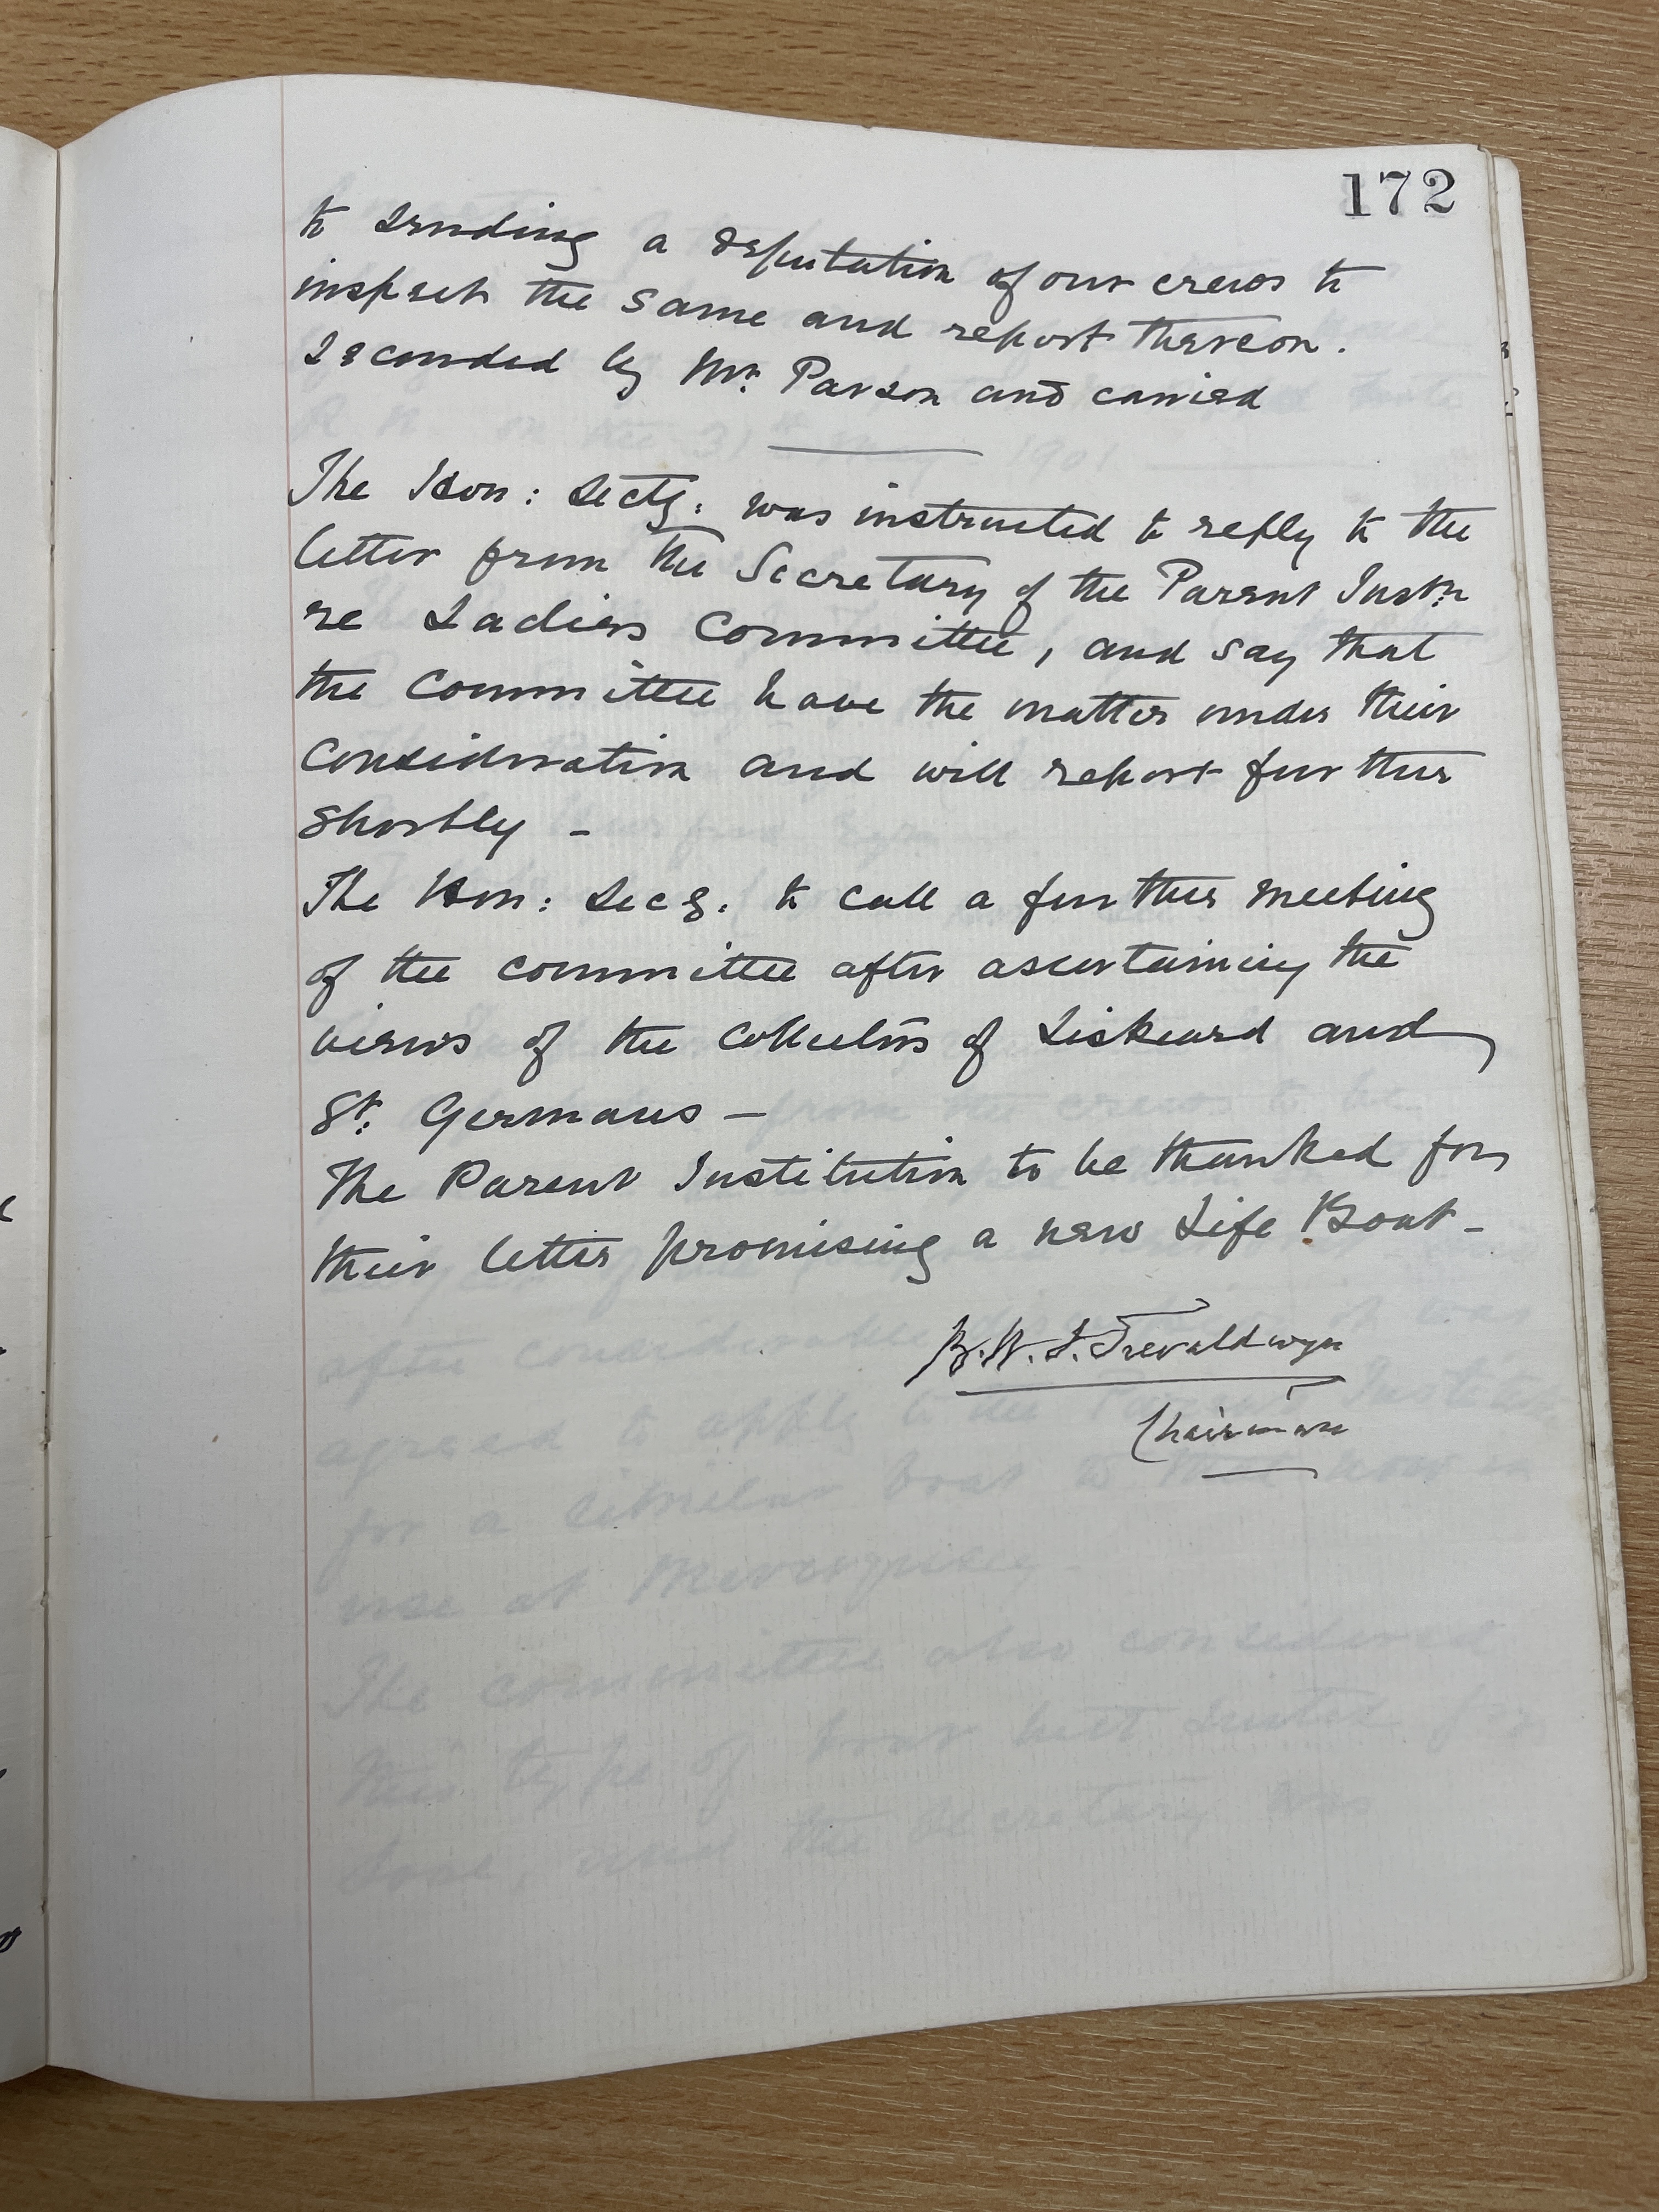 172
to sending a deputation of our crews to
inspect the same and report thereon.
Seconded by Mr. Parson and carried
The Hon: Secty. was instructed to reply to the
letter from the Secretary of the Parent Instn.
re Ladies Committee, and say that
the Committee have the matter under their
consideration and will report further
shortly -
The Hon: Secy. to call a further meeting
of the committee after ascertaining the
views of the Collectors of Liskeard and
St. Germans -
The Parent Institution to be thanked for
their letter promising a new Life Boat -
Trevaldwyn
Chairman